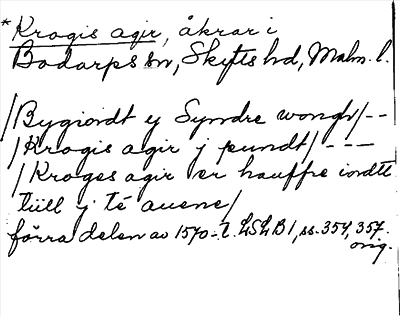 *Krogis agir, åkrar i
Bodarps sn, Skytts hd, Malm. l.
/Bygiordt ij Syndre wongh/--
/Krogis agir j pundt/---
/Kroges agir er hauffre iordtt
tiill j té auene/
förra delen av 1570-t. LSLB 1, ss. 354, 357.
orig.